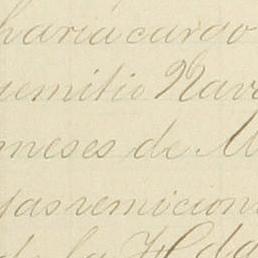 haria cargo
emitio Nava
meses de M
tas remicion
de la Hda